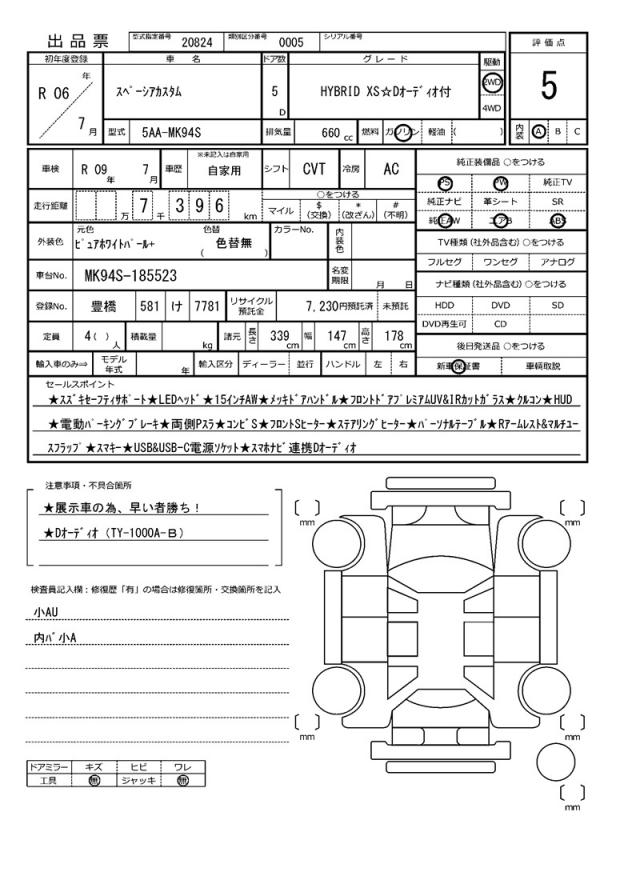 出品票 型式指定番号 20824 類別区分番号 0005 シリアル番号
初年度登録 車名 ドア数 グレード 駆動 評価点
R 06 年 7 月 スペーシアカスタム 5 D HYBRID XS☆Dオーディオ付 2WD 4WD 5
型式 5AA-MK94S 排気量 660 cc 燃料 ガソリン 軽油 ( ) 内装 A B C
車検 R 09 年 7 月 車歴 ※未記入は自家用 自家用 シフト CVT 冷房 AC 純正装備品 ○をつける
PS PW 純正TV
走行距離 万 7 千 3 9 6 km ○をつける マイル $ (交換) * (改ざん) # (不明) 純正ナビ 革シート SR
純正AW エアB ABS
外装色 元色 ピュアホワイトパール+ 色替 ( 色替無 ) カラーNo. 内装色 TV種類 (社外品含む) ○をつける
フルセグ ワンセグ アナログ
車台No. MK94S-185523 名変期限 月 日 ナビ種類 (社外品含む) ○をつける
登録No. 豊橋 581 け 7781 リサイクル預託金 7,230円預託済 未預託 HDD DVD SD
DVD再生可 CD
定員 4( ) 人 積載量 kg 諸元 長さ 339 cm 幅 147 cm 高さ 178 cm 後日発送品 ○をつける
輸入車のみ⇒ モデル年式 年 輸入区分 ディーラー 並行 ハンドル 左 右 新車保証書 車輌取説
セールスポイント
★スズキセーフティサポート★LEDヘッド★15インチAW★メッキドアハンドル★フロントドアプレミアムUV&IRカットガラス★クルコン★HUD
★電動パーキングブレーキ★両側Pスラ★コンビS★フロントSヒーター★ステアリングヒーター★パーソナルテーブル★Rアームレスト&マルチユー
スフラップ★スマキー★USB&USB-C電源ソケット★スマホナビ連携Dオーディオ
注意事項・不具合箇所
★展示車の為、早い者勝ち！
★Dオーディオ (TY-1000A-B)
検査員記入欄：修復歴「有」の場合は修復箇所・交換箇所を記入
小AU
内バ小A
[ ] mm
[ ] mm
[ ] mm
[ ] mm
[ ] mm
ドアミラー キズ ヒビ ワレ
工具 無 ジャッキ 無